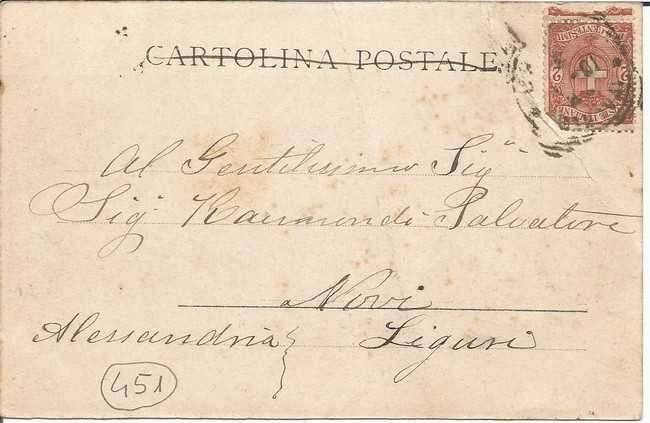 CARTOLINA POSTALE
Al Gentilissimo Sig
Sig. Raimondi Salvatore
Novi
Alessandria Liguri
451